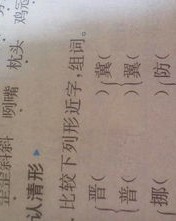 歪歪斜斜 咧嘴 枕头 鸡冠
认清形
比较下列形近字，组词。
晋( )冀(
普( )翼(
挪( )防(